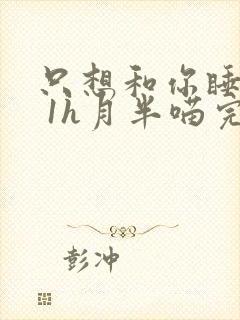 只想和你睡
1h月半喵完
彭冲